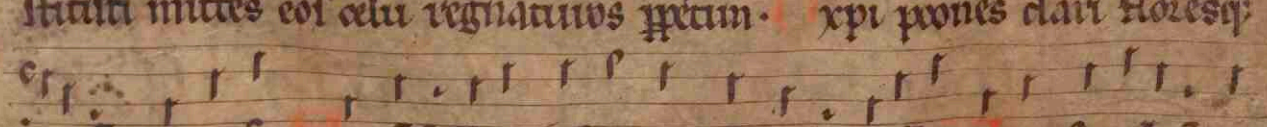 mittes eos celu regnaturos ꝑpetim. xpi pꝛones clari floresq;